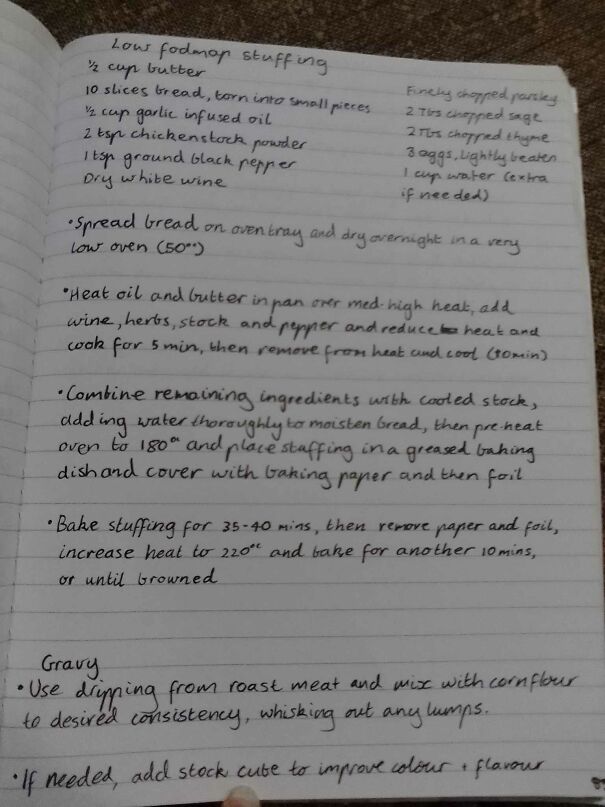 Low fodmap stuffing
½ cup butter
10 slices bread, torn into small pieces
½ cup garlic infused oil
2 tsp chicken stock powder
1 tsp ground black pepper
Dry white wine
Finely chopped parsley
2 Tbs chopped sage
2 Tbs chopped thyme
3 eggs, lightly beaten
1 cup water (extra
if needed)
• Spread bread on oven tray and dry overnight in a very
low oven (50°°)
• Heat oil and butter in pan over med-high heat, add
wine, herbs, stock and pepper and reduce heat and
cook for 5 min, then remove from heat and cool (10min)
• Combine remaining ingredients with cooled stock,
adding water thoroughly to moisten bread, then pre-heat
oven to 180°c and place stuffing in a greased baking
dish and cover with baking paper and then foil
• Bake stuffing for 35-40 mins, then remove paper and foil,
increase heat to 220°c and bake for another 10mins,
or until browned
Gravy
• Use dripping from roast meat and mix with cornflour
to desired consistency, whisking out any lumps.
• If needed, add stock cube to improve colour + flavour